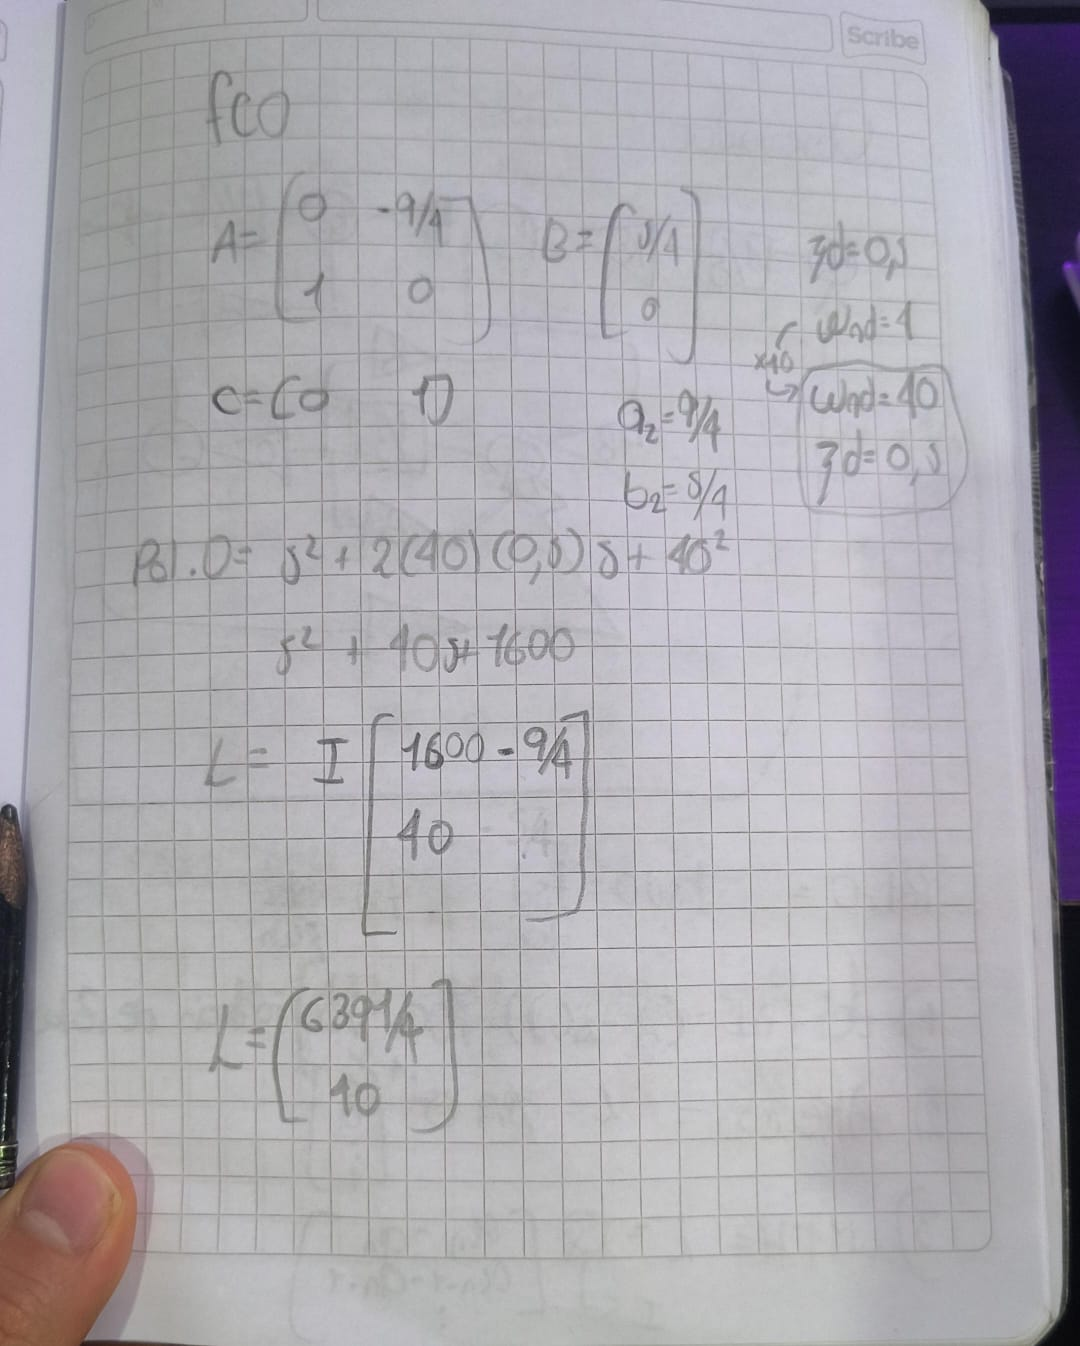 Scribe
fco
A= [0 -9/4
1 0] B= [5/4
0] ʒd=0,5
wnd=4
x10
C=(0 1) ↳ wnd=40
ʒd=0,5
a₂=9/4
b₂=5/4
Pol.D= s² + 2(40)(0,5)s + 40²
s² + 40s+1600
L= I [1600-9/4
40]
L= [6391/4
40]